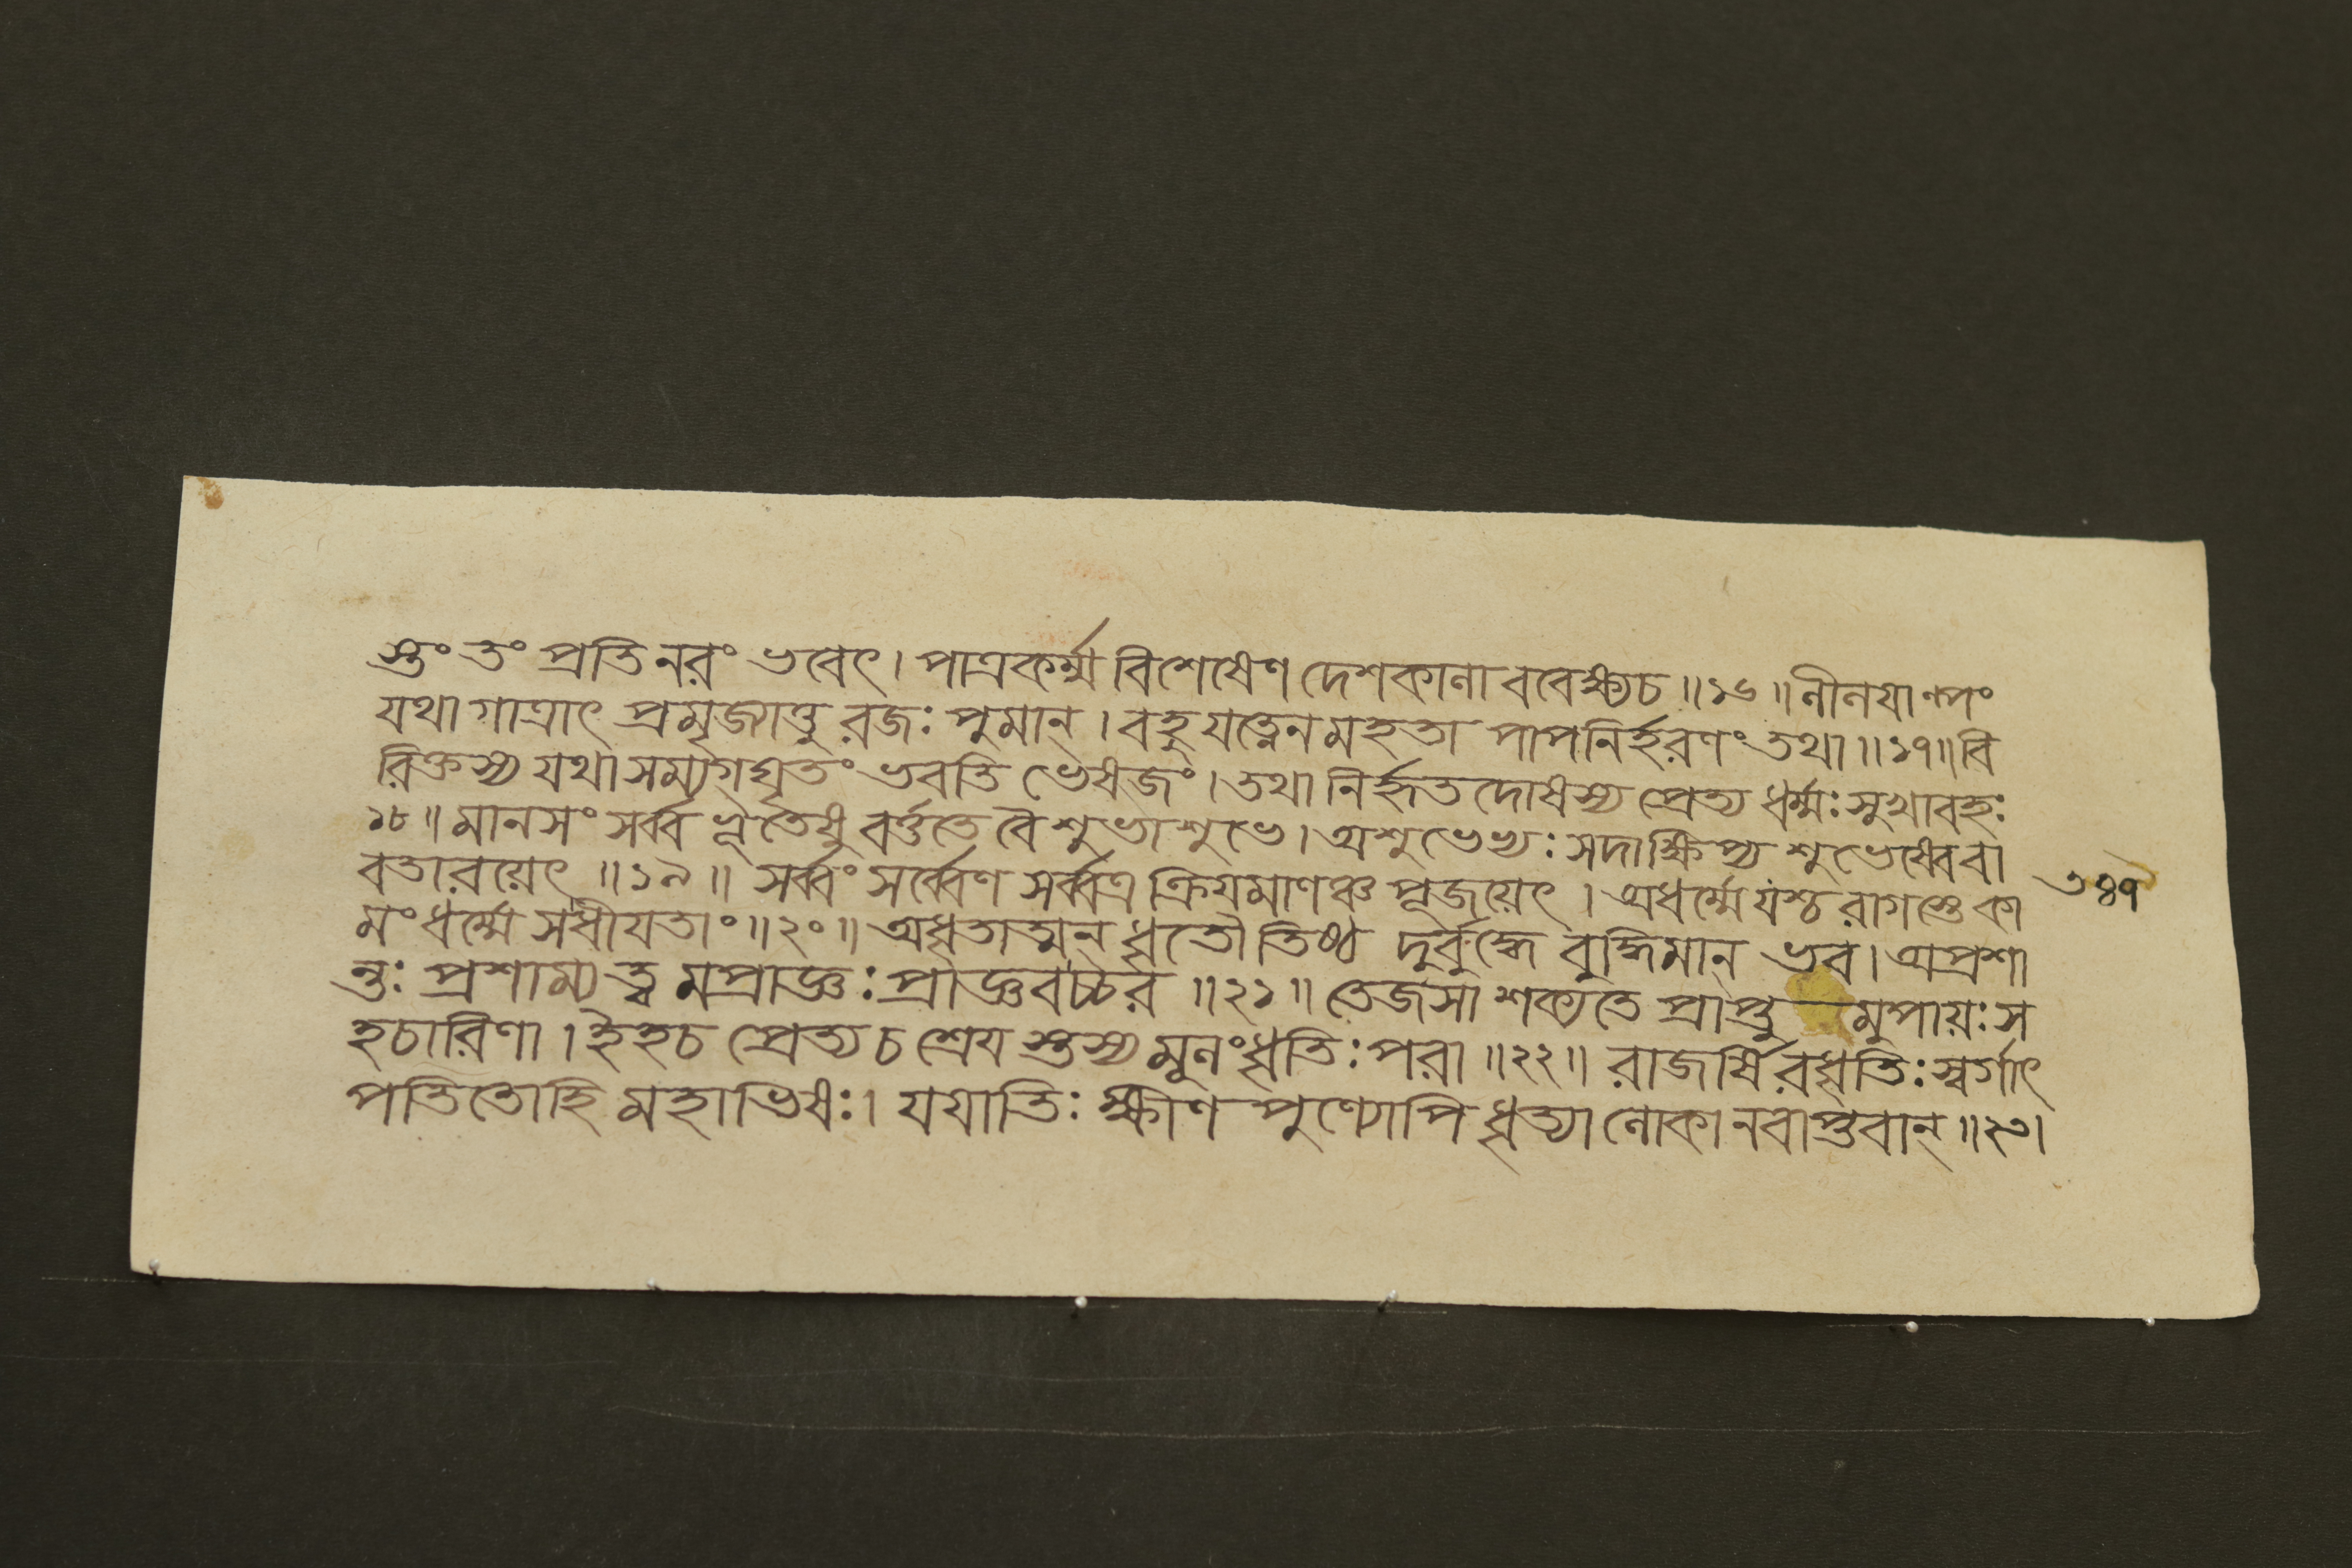 স্তং তং প্রতি নরং ভবেৎ। পাত্রকর্ম্ম বিশেষেণ দেশকালা ববেক্ষ্যচ॥১৬॥লীলযাল্পং
যথা গাত্রাৎ প্রমৃজ্যাত্তু রজঃ পুমান্। বহু যত্নেন মহতা পাপনির্হরণং তথা॥১৭॥বি
রিক্তস্য যথা সম্যগ্ঘৃতং ভবতি ভেষজং। তথা নির্হৃত দোষস্য প্রেত্য ধর্ম্মঃ সুখাবহঃ
১৮॥ মানসং সর্ব্ব ভূতেষু বর্ত্ততে বৈ শুভাশুভে। অশুভেভ্যঃ সদাক্ষিপ্য শুভেষ্বেবা
বতারয়েৎ॥১৯॥ সর্ব্বং সর্ব্বেণ সর্ব্বত্র ক্রিয়মাণঞ্চ পূজয়েৎ। অধর্ম্মে যশ্চ রাগস্তে কা
৩৪৭
মং ধর্ম্মে সধীযতাং॥২০॥ অধৃতাত্মন্ ধৃতৌ তিষ্ঠ দুর্বুদ্ধে বুদ্ধিমান্ ভব। অপ্রশা
ন্তঃ প্রশাম্য ত্ব মপ্রাজ্ঞঃ প্রাজ্ঞবচ্চর॥২১॥ তেজসা শক্যতে প্রাপ্তু মুপায়ঃ স
হচারিণা। ইহচ প্রেত্য চ শ্রেয স্তস্য মূলং ধৃতিঃ পরা॥২২॥ রাজর্ষি রধৃতিঃ স্বর্গাৎ
পতিতোহি মহাভিষঃ। যযাতিঃ ক্ষীণ পুণ্যোপি ধৃত্যা লোকা নবাপ্তবান্॥২৩।